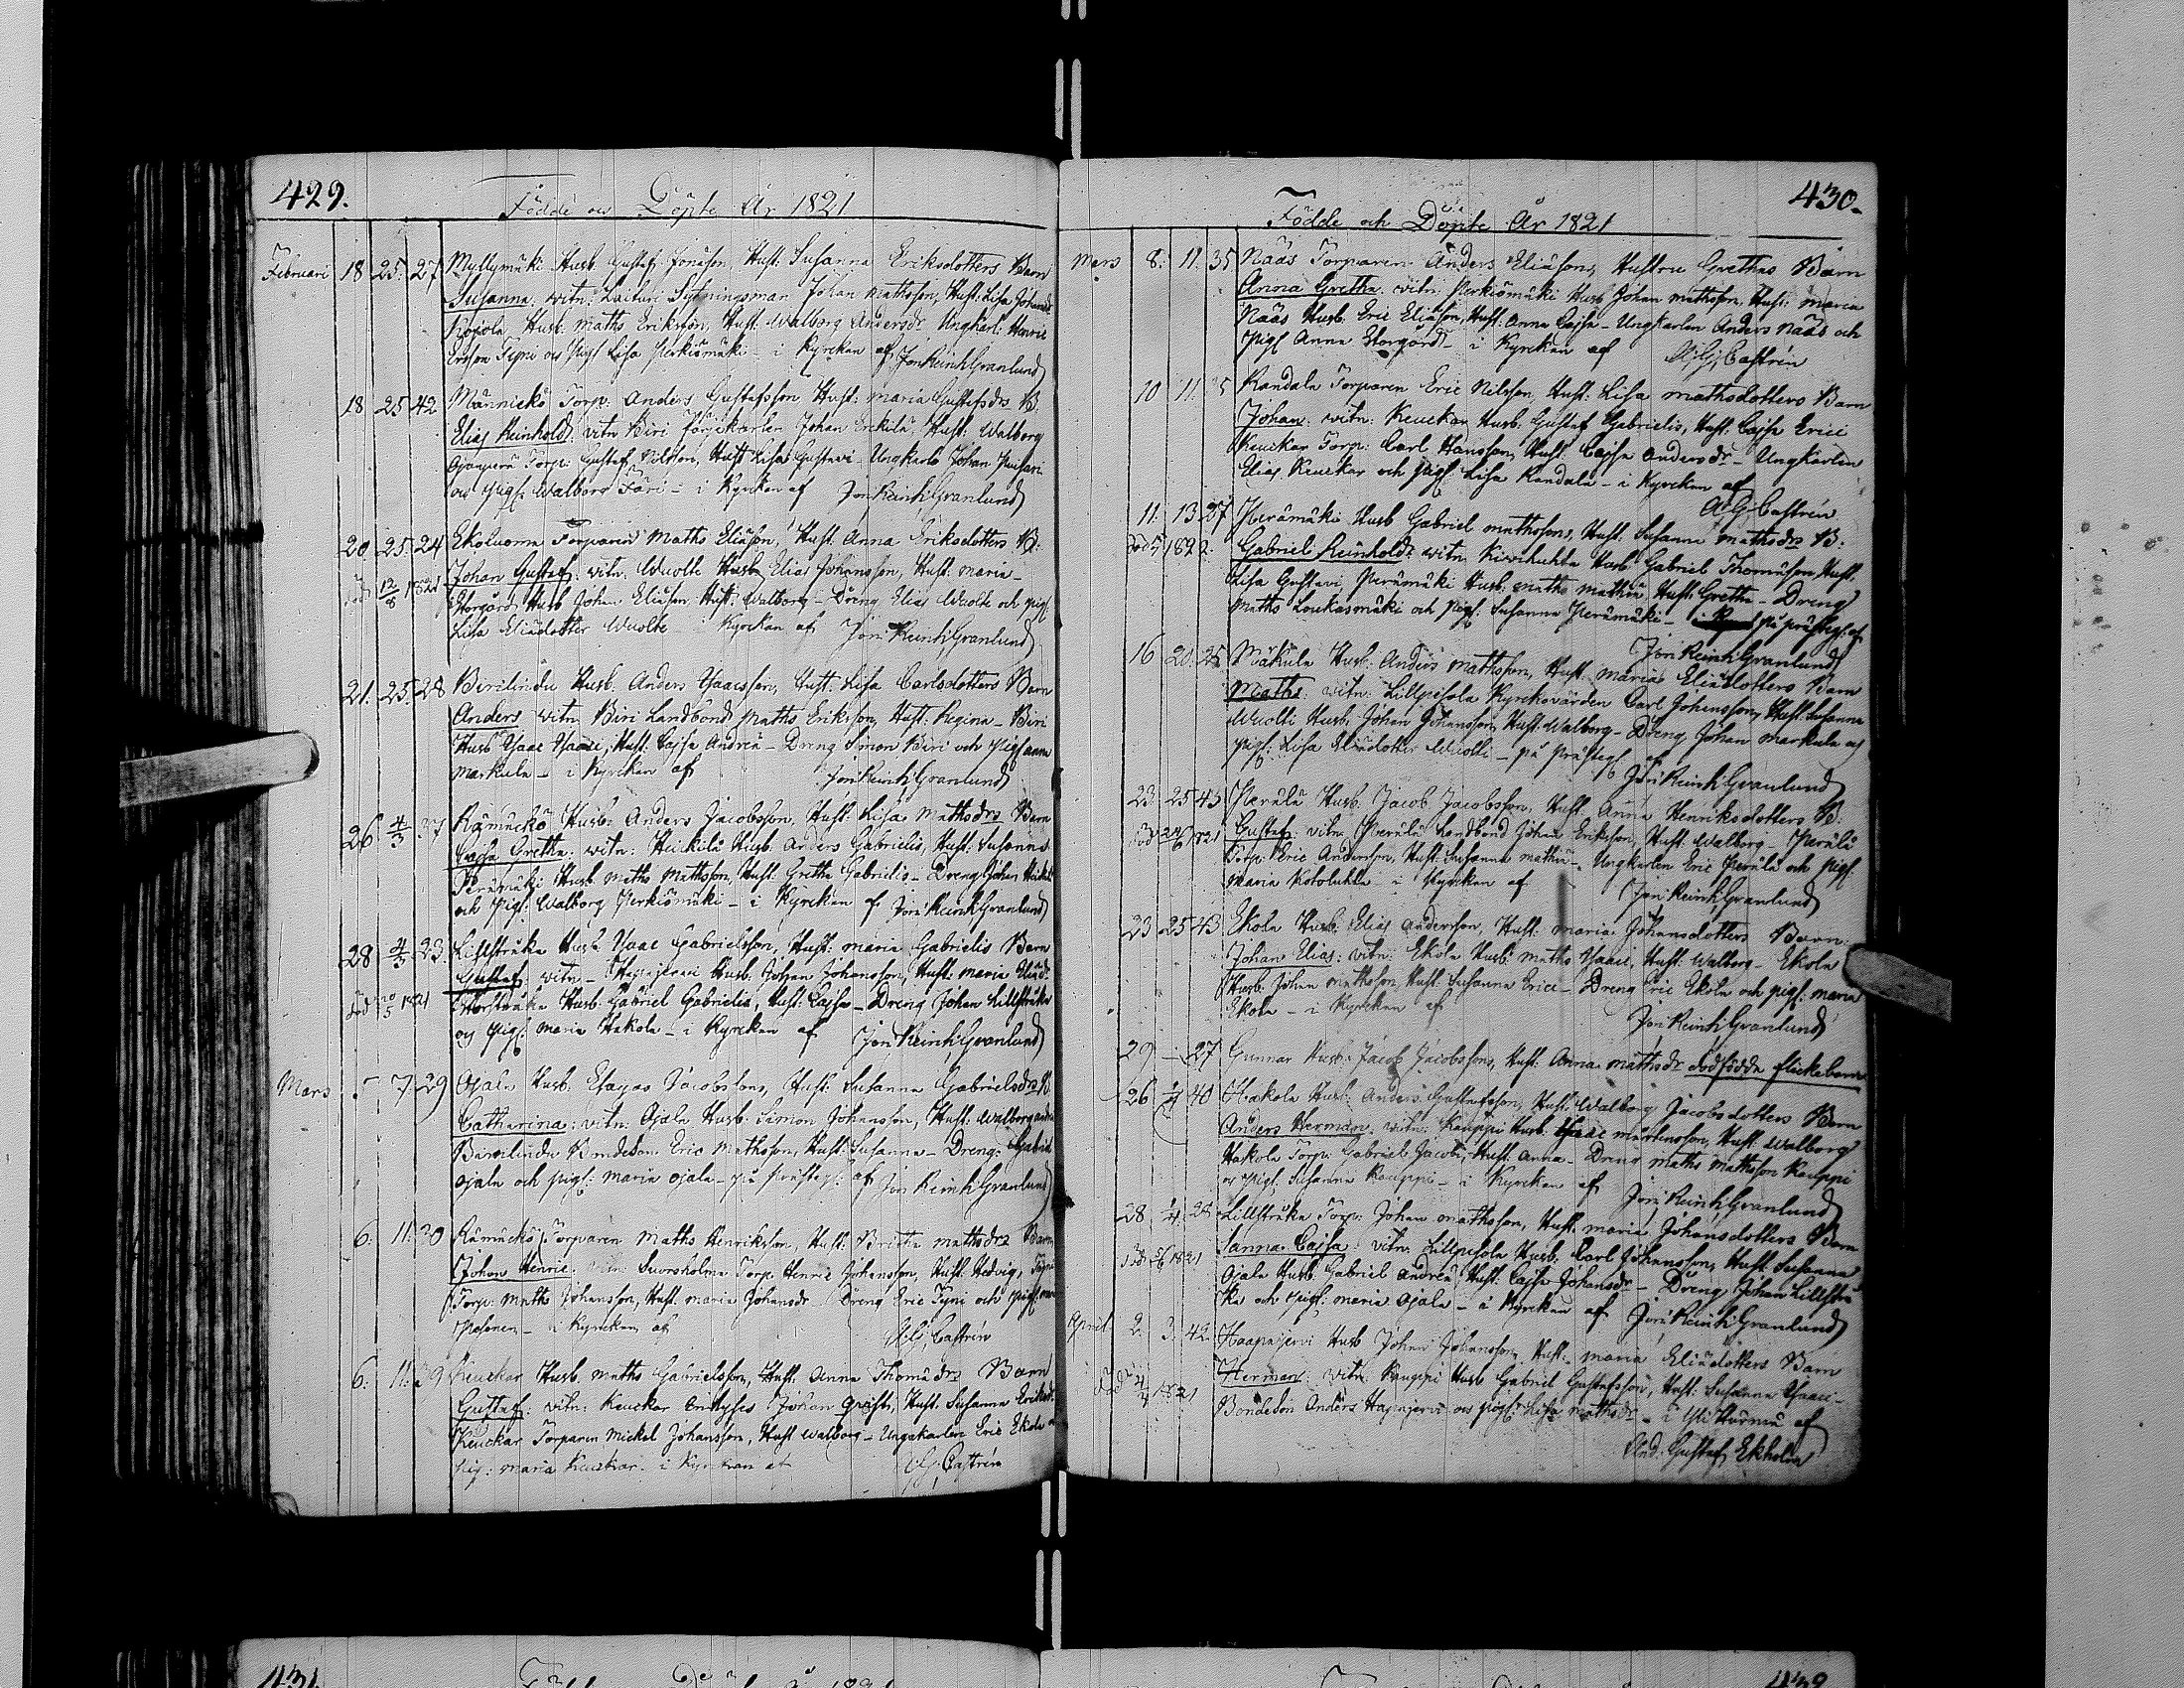 429.
Födde och Döpte År 1821
Februari 18 25. 27 Myllymäki Husb. Gustaf Jonasson, Hust: Susanna Eriksdotters Barn
Susanna. witn: Laituri Sytningsman Johan Mattsson, Hust: Lisa Johansdr
Husb: Maths Eriksson, Hust: Walborg Andersdr Ungkarl: Henric
Ersson Tyni och Pig: Lisa Perkiömäki - i Kyrckan af Jon Reinh: Granlund
18 25 42 Männickö Torp: Anders Gustafsson Hust: Maria Gustafsdr B.
Elias Reinhold. vitn Biri Färjekarlen Johan Erckilä Hust: Walborg
Torp: Gustaf Nilsson, Hust Lisa Gustavi - Ungkarlen Johan
och Pig: Walborg Färi - i Kyrckan af Jon Reinh: Granlund
20 25. 24 Ekoluoma Torparen Maths Eliasson, Hust. Anna Eriksdotters B:
död 12/8 1821 Johan Gustaf: vitn. Wuolte Husb. Elias Johansson, Hust: Maria -
Storgård Husb Johan Eliasson, Hust: Walborg - Dreng Elias Wuolte och pig:
Lisa Eliädotter Wuolte i Kyrckan af Jon Reinh: Granlund
21. 25. 28 Birilindu Husb. Anders Isaacsson, Hust: Lisa Carlsdotters Barn
Anders vitn. Biri Landbond Maths Eriksson, Hust. Regina - Biri
Husb Isaac Isaaci, Hust. Cajsa Andreä - Dreng Simon Biri och Pig Anna
Markula - i Kyrckan af Jon Reinh: Granlund
26. 4/3. 37 Rämäckö Husb: Anders Jacobsson, Hust: Lisa Mathsdrs Barn
Cajsa Gretha: witn: Heickilä Husb. Anders Gabrielis, Hust: Susanna
Perämäki Husb. Maths Mathsson, Hust. Gretha Gabrielis - Dreng Johan
och Pig: Walborg Perkiömäki - i Kyrckan af Jon Reinh Granlund
28 4/3. 23. Lillstråka Husb. Isaac Gabrielsson, Hust: Maria Gabrielis Barn
Gustaf vitn - Haapajerwi Husb. Johan Johansson, Hust: Maria Eliädr
död 20/5 1821 Storstråka Husb. Gabriel Gabrielis, Hust: Cajsa - Dreng Johan Lillstråka
och Pig: Maria Hakola - i Kyrckan af Jon Reinh: Granlund
Mars 5 7. 29 Ojala Husb. Esayas Jacobssons, Hust: Susanna Gabrielsdrs B
Catharina; vitn: Ojala Husb: Simon Johansson, Hust: Walborg
Birilindu Bondeson Eric Mathsson, Hust: Susanna - Dreng: Gabriel
Ojala och Pig: Maria Ojala - på Prästeg: af Jon Reinh Granlund
6: 11: 30 Rämäckö Torparen Maths Henriksson, Hust: Britta Mathsdrs Barn
Johan Henric. vitn Suorsholma Torp. Henric Johansson, Hust. Hedvig,
Torp: Maths Johansson, Hust. Maria Johansdr Dreng Eric Tyni och Pig
i Kyrckan af Castrén
6: 11: 39 Keuckar Husb. Maths Gabrielsson, Hust. Anna Thomädrs Barn
Gustaf: vitn: Keuckar Johan Qvist, Hust. Susanna Eriksdr
Keuckar Torparen Mickel Johansson, Hust Walborg - Ungakarlen Eric Ekola
Pig: Maria Keuckar. i Kyrckan af Castrén
430.
Födde och Döpte År 1821
Mars 8: 11: 35 Näås Torparen Anders Eliäson, Hustru Grethas Barn
Anna Gretha. vitn. Perkiömäki Husb. Johan Mathsson, Hust: Maria
Näås Husb. Eric Eliäson, Hust. Anna Cajsa - Ungkarlen Anders Näås och
Pig: Anna Storgård - i Kyrckan af Castrén
10 11: Kandala Torparen Eric Nilsson, Hust. Lisa Mathsdotters Barn
Johan: vitn: Keuckar Husb: Gustaf Gabrielis, Hust: Cajsa Erici
Keuckar Torp: Carl Hansson, Hust: Cajsa Andersdr - Ungkarlen
Elias Keuckar och Pig Lisa Kandala - i Kyrckan af
A: G: Castrén
11. 13 27 Perämäki Husb Gabriel Mathssons, Hust: Susanna Mathsdrs B:
1822. Gabriel Reinhold: vitn. Kivihuhta Husb Gabriel Thomäson, Hust:
Lisa Gustavi Perämäki Husb. Maths Mathiä Hust: Gretha - Dreng
Maths Loukasmäki och Pig: Susanna Perämäki - på Prästeg: af
Jon Reinh: Granlund
16 20. 25 Markula Husb. Anders Mathsson, Hust: Maria Eliädotters Barn
Maths: vitn: Lillpesola Kyrckovärden Carl Johansson, Hust: Susanna
Wuolti Husb. Johan Johansson Hust: Walborg - Dreng Johan Markula och
Pig: Lisa Eliädotter Wuolti - på Prästeg
Jon Reinh: Granlund
23. 25 43 Perälä Husb. Jacob Jacobsson, Hust. Anna Henriksdotters B:
1821 Gustaf: vitn. Perälä Landbond Johan Eriksson, Hust: Walborg - Perälä
Torp: Eric Andersson, Hust: Susanna Mathiä - Ungkarlen Eric Perälä och Pig:
Maria - i Kyrckan af Jon Reinh: Granlund
23 25 43 Ekola Husb. Elias Andersson, Hust. Maria Johansdotters Barn:
Johan Elias: vitn: Ekola Husb: Maths Isaaci, Hust: Walborg - Ekola
Husb. Johan Mathsson, Hust: Susanna Erici - Dreng Eric Ekola och Pig: Maria
Ekola - i Kyrckan af
Jon Reinh: Granlund
29 - 27 Gunnar Husb: Jacob Jacobssons, Hust. Anna Mathsdr dödfödde flickebarn
26 1/4 40 Hakola Husb. Anders Gustafsson, Hust: Walborg Jacobsdotters Barn
Anders Herman. vitn: Kauppi Husb: Isaac Mårtensson, Hust: Walborg
Hakola Torp: Gabriel Jacobi, Hust. Anna - Dreng Maths Mathsson Kauppi
och Pig: Susanna Kauppi - i Kyrckan af Jon Reinh: Granlund
28 1/4. 28 Lillstråka Torp: Johan Mathsson, Hust. Maria Johansdotters Barn
1821 Sanna Cajsa: vitn: Lillpesola Husb: Carl Johansson, Hust Susanna
Ojala Husb. Gabriel Andreä Hust. Cajsa Johansdr - Dreng Johan Lillstrå
ka och Pig: Maria Ojala - i Kyrckan af Jon Reinh: Granlund
April 2. 3. 42 Haapajervi Husb Johan Johansson, Hust: Maria Eliädotters Barn
1821 Herman: vitn: Kauppi Husb Gabriel Gustafsson, Hust: Susanna Isaaci -
Bondeson Anders Hapajervi och Pig: Lisa Mathsdr - i Ylihärmä af
And: Gustaf Ekholm
431